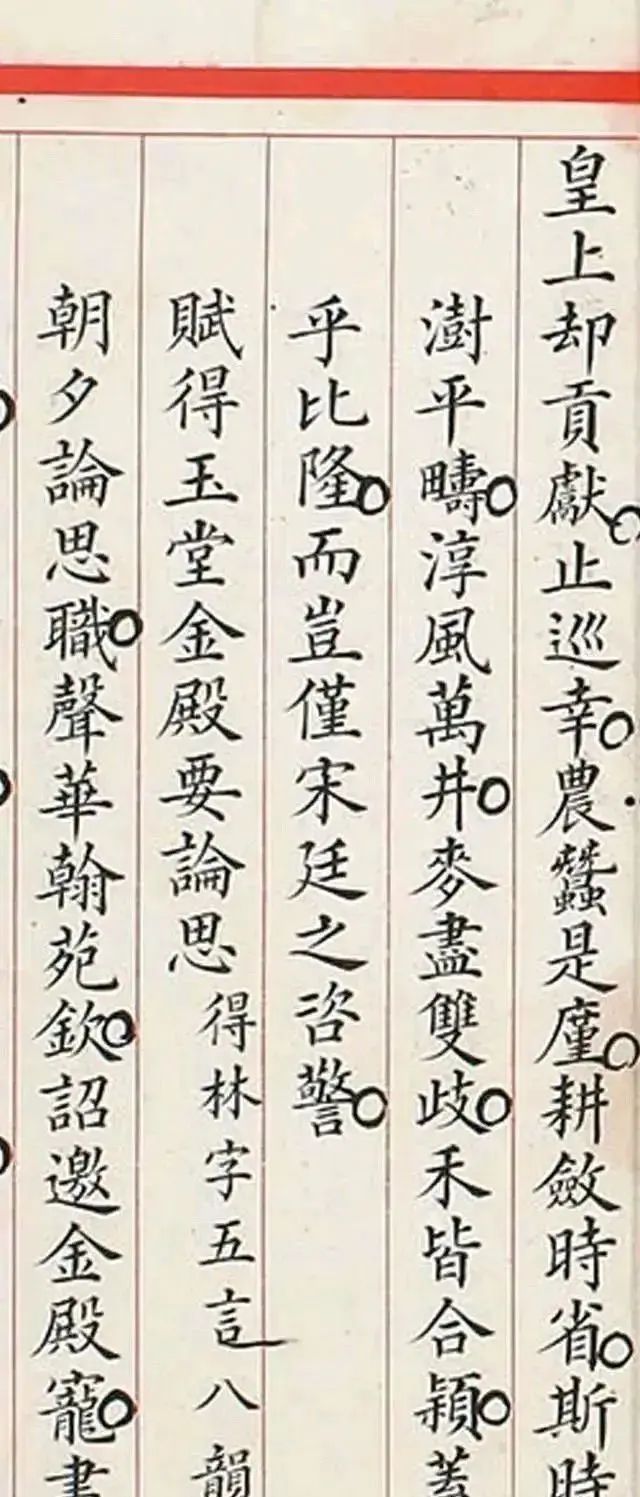 皇上却貢獻止巡幸農蠶是廑耕斂時省斯時
澍平疇淳風萬井麥盡雙歧禾皆合穎蓋
乎比隆而豈僅宋廷之咨警
賦得玉堂金殿要論思得林字五言八韻
朝夕論思職聲華翰苑欽詔邀金殿寵書